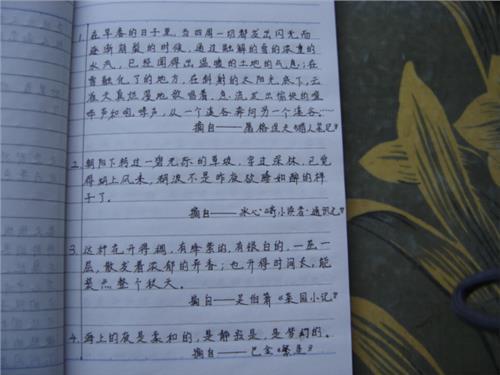 1. 在早春的日子里,当四周一切都发出闪光而
逐渐崩裂的时候,通过融解的雪的浓重的
水汽,已经闻得出温暖的土地的气息;在
雪融化了的地方,在斜射的太阳光底下,云
雀天真烂漫地歌唱着,急流发出愉快的喧
哗声和咆哮声,从一个溪谷奔向另一个溪谷……
摘自——屠格涅夫《猎人笔记》
2. 朝阳下转过一碧无际的草坡,穿过深林,已觉
得湖上风来,湖波不是昨夜欲睡如醉的样
子了。
摘自——冰心《寄小读者·通讯七》
3. 这种花开得稠,有绛紫的,有银白的,一层一
层,散发着浓郁的异香;也开得时间长,能
装点整个秋天。
摘自——吴伯箫《菜园小记》
4. 海上的夜是柔和的,是静寂是,是梦幻的。
摘自——巴金《繁星》